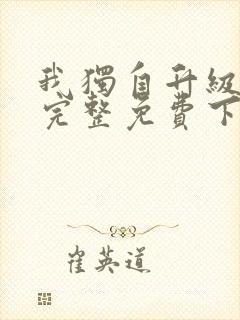 我獨自升級
完整免費下
崔英道